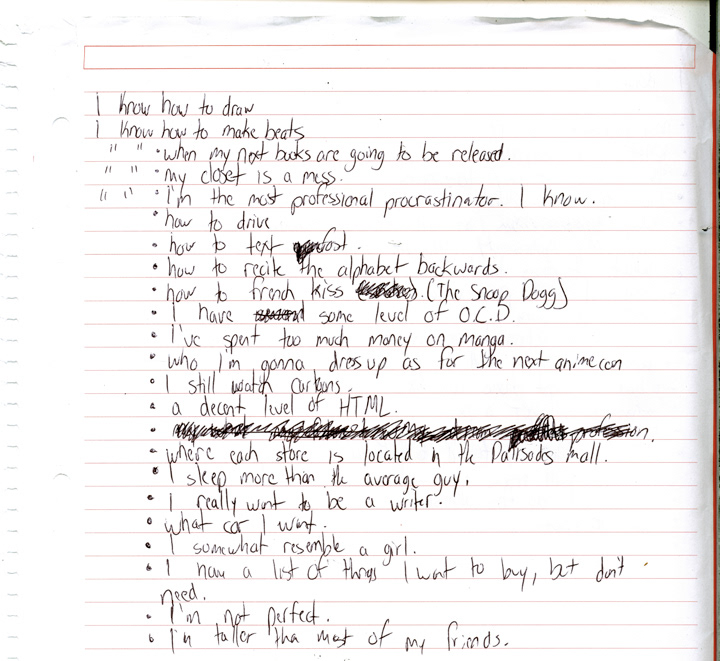 I know how to draw
I know how to make beats
" " • when my next books are going to be released.
" " • my closet is a mess.
" " • I'm the most professional procrastinator. I know.
• how to drive
• how to text fast.
• how to recite the alphabet backwards.
• how to french kiss (The Snoop Dogg)
• I have some level of O.C.D.
• I've spent too much money on manga.
• who I'm gonna dress up as for the next anime con
• I still watch cartoons.
• a decent level of HTML.
• profession.
• where each store is located in the Pallisades mall.
• I sleep more than the average guy.
• I really want to be a writer.
• what car I want.
• I somewhat resemble a girl.
• I have a list of things I want to buy, but don't
need.
• I'm not perfect.
• I'm taller than most of my friends.